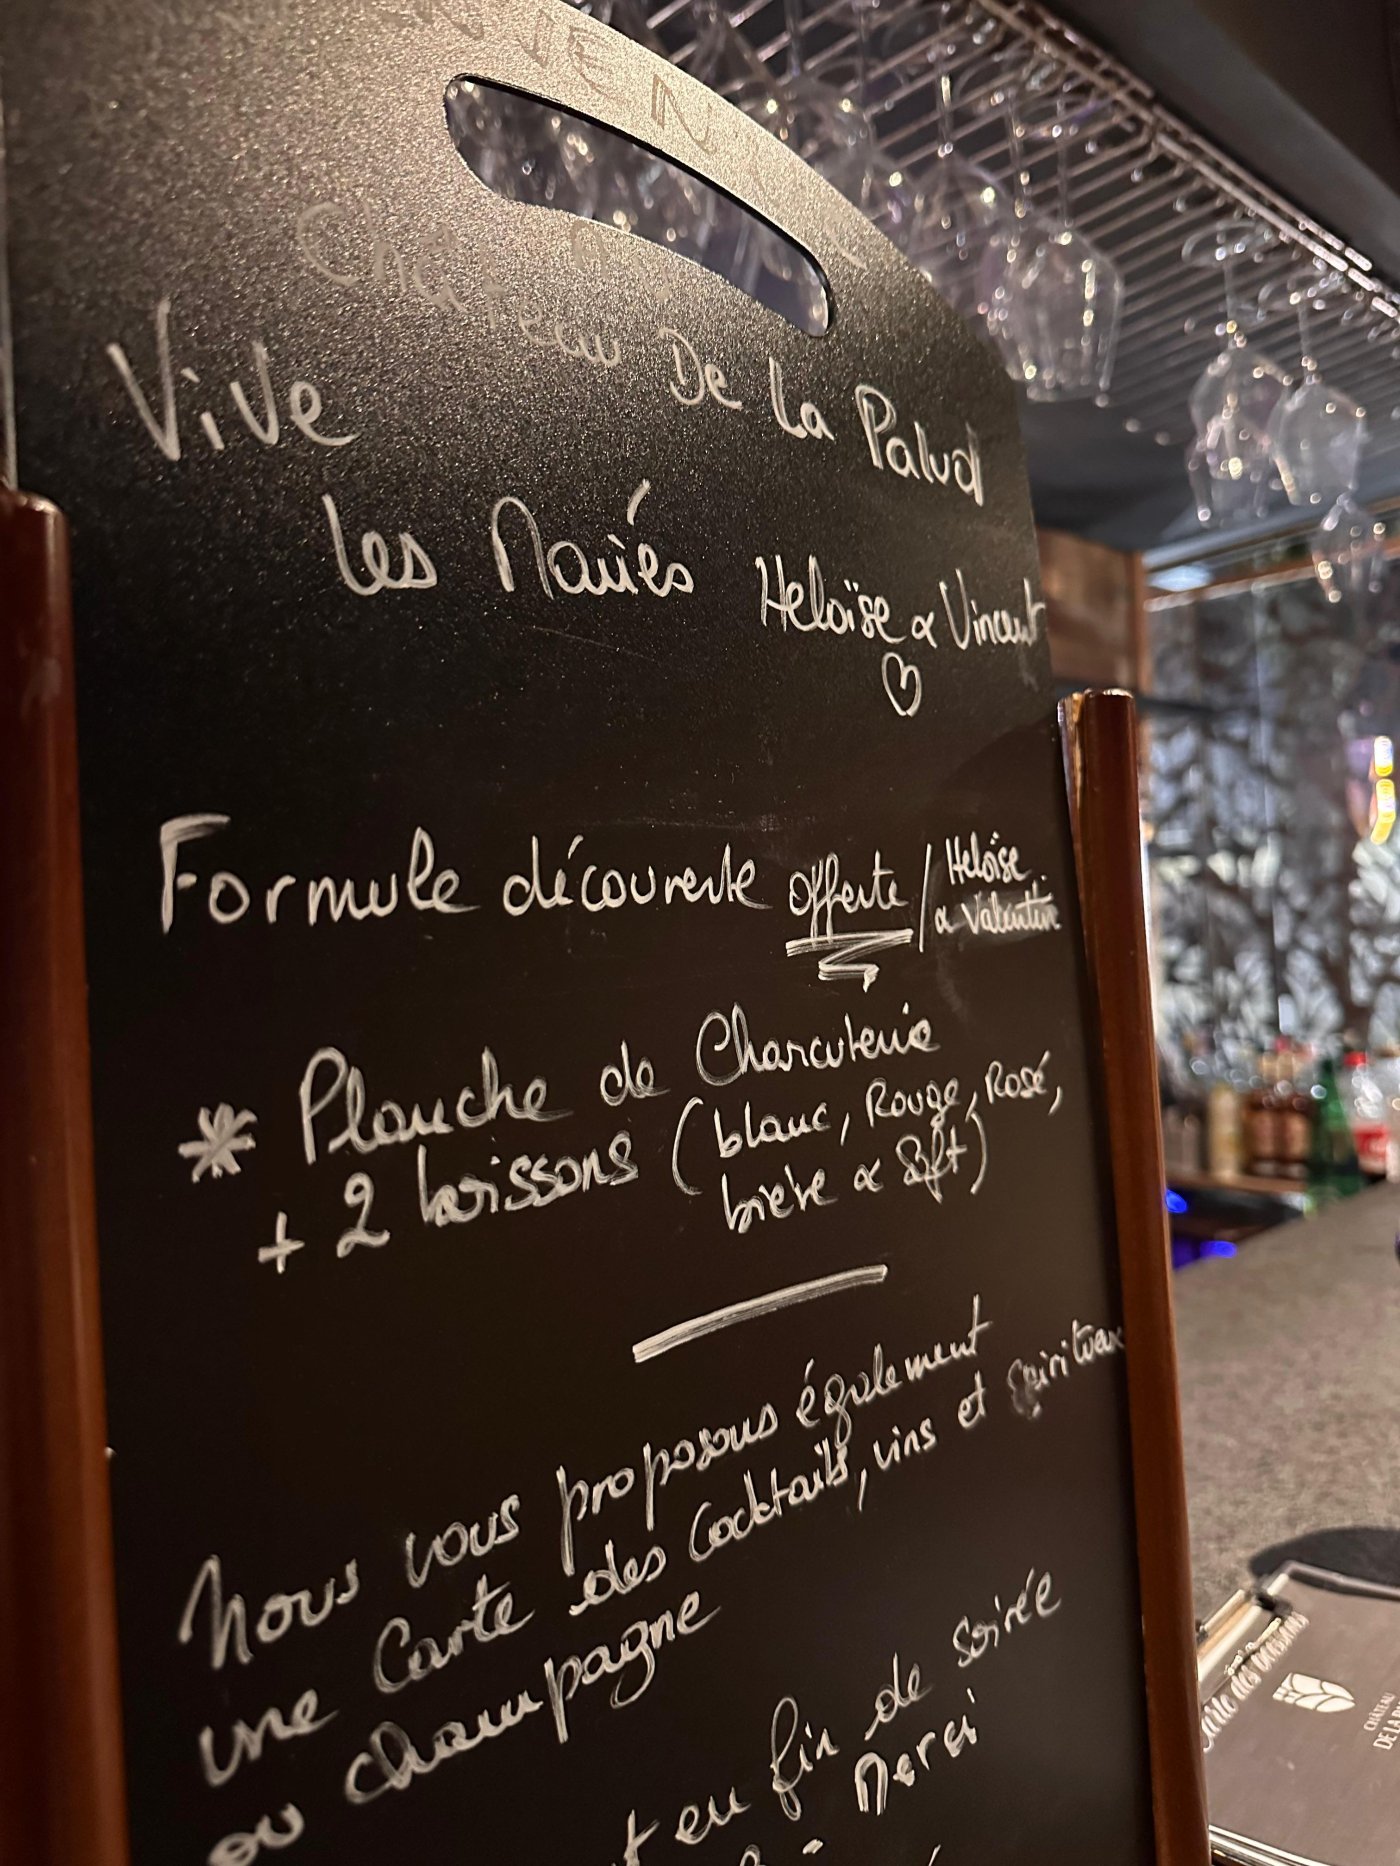 Château De La Palud
Vive
les Mariés
Heloïse & Vincent
Formule découverte offerte / Heloïse
& Valentin
* Planche de Charcuterie
+ 2 boissons (blanc, Rouge, Rosé,
bière & Soft)
Nous vous proposons également
une Carte des Cocktails, vins et Spiritueux
ou champagne
en fin de soirée
Merci
Carte des boissons
CHÂTEAU